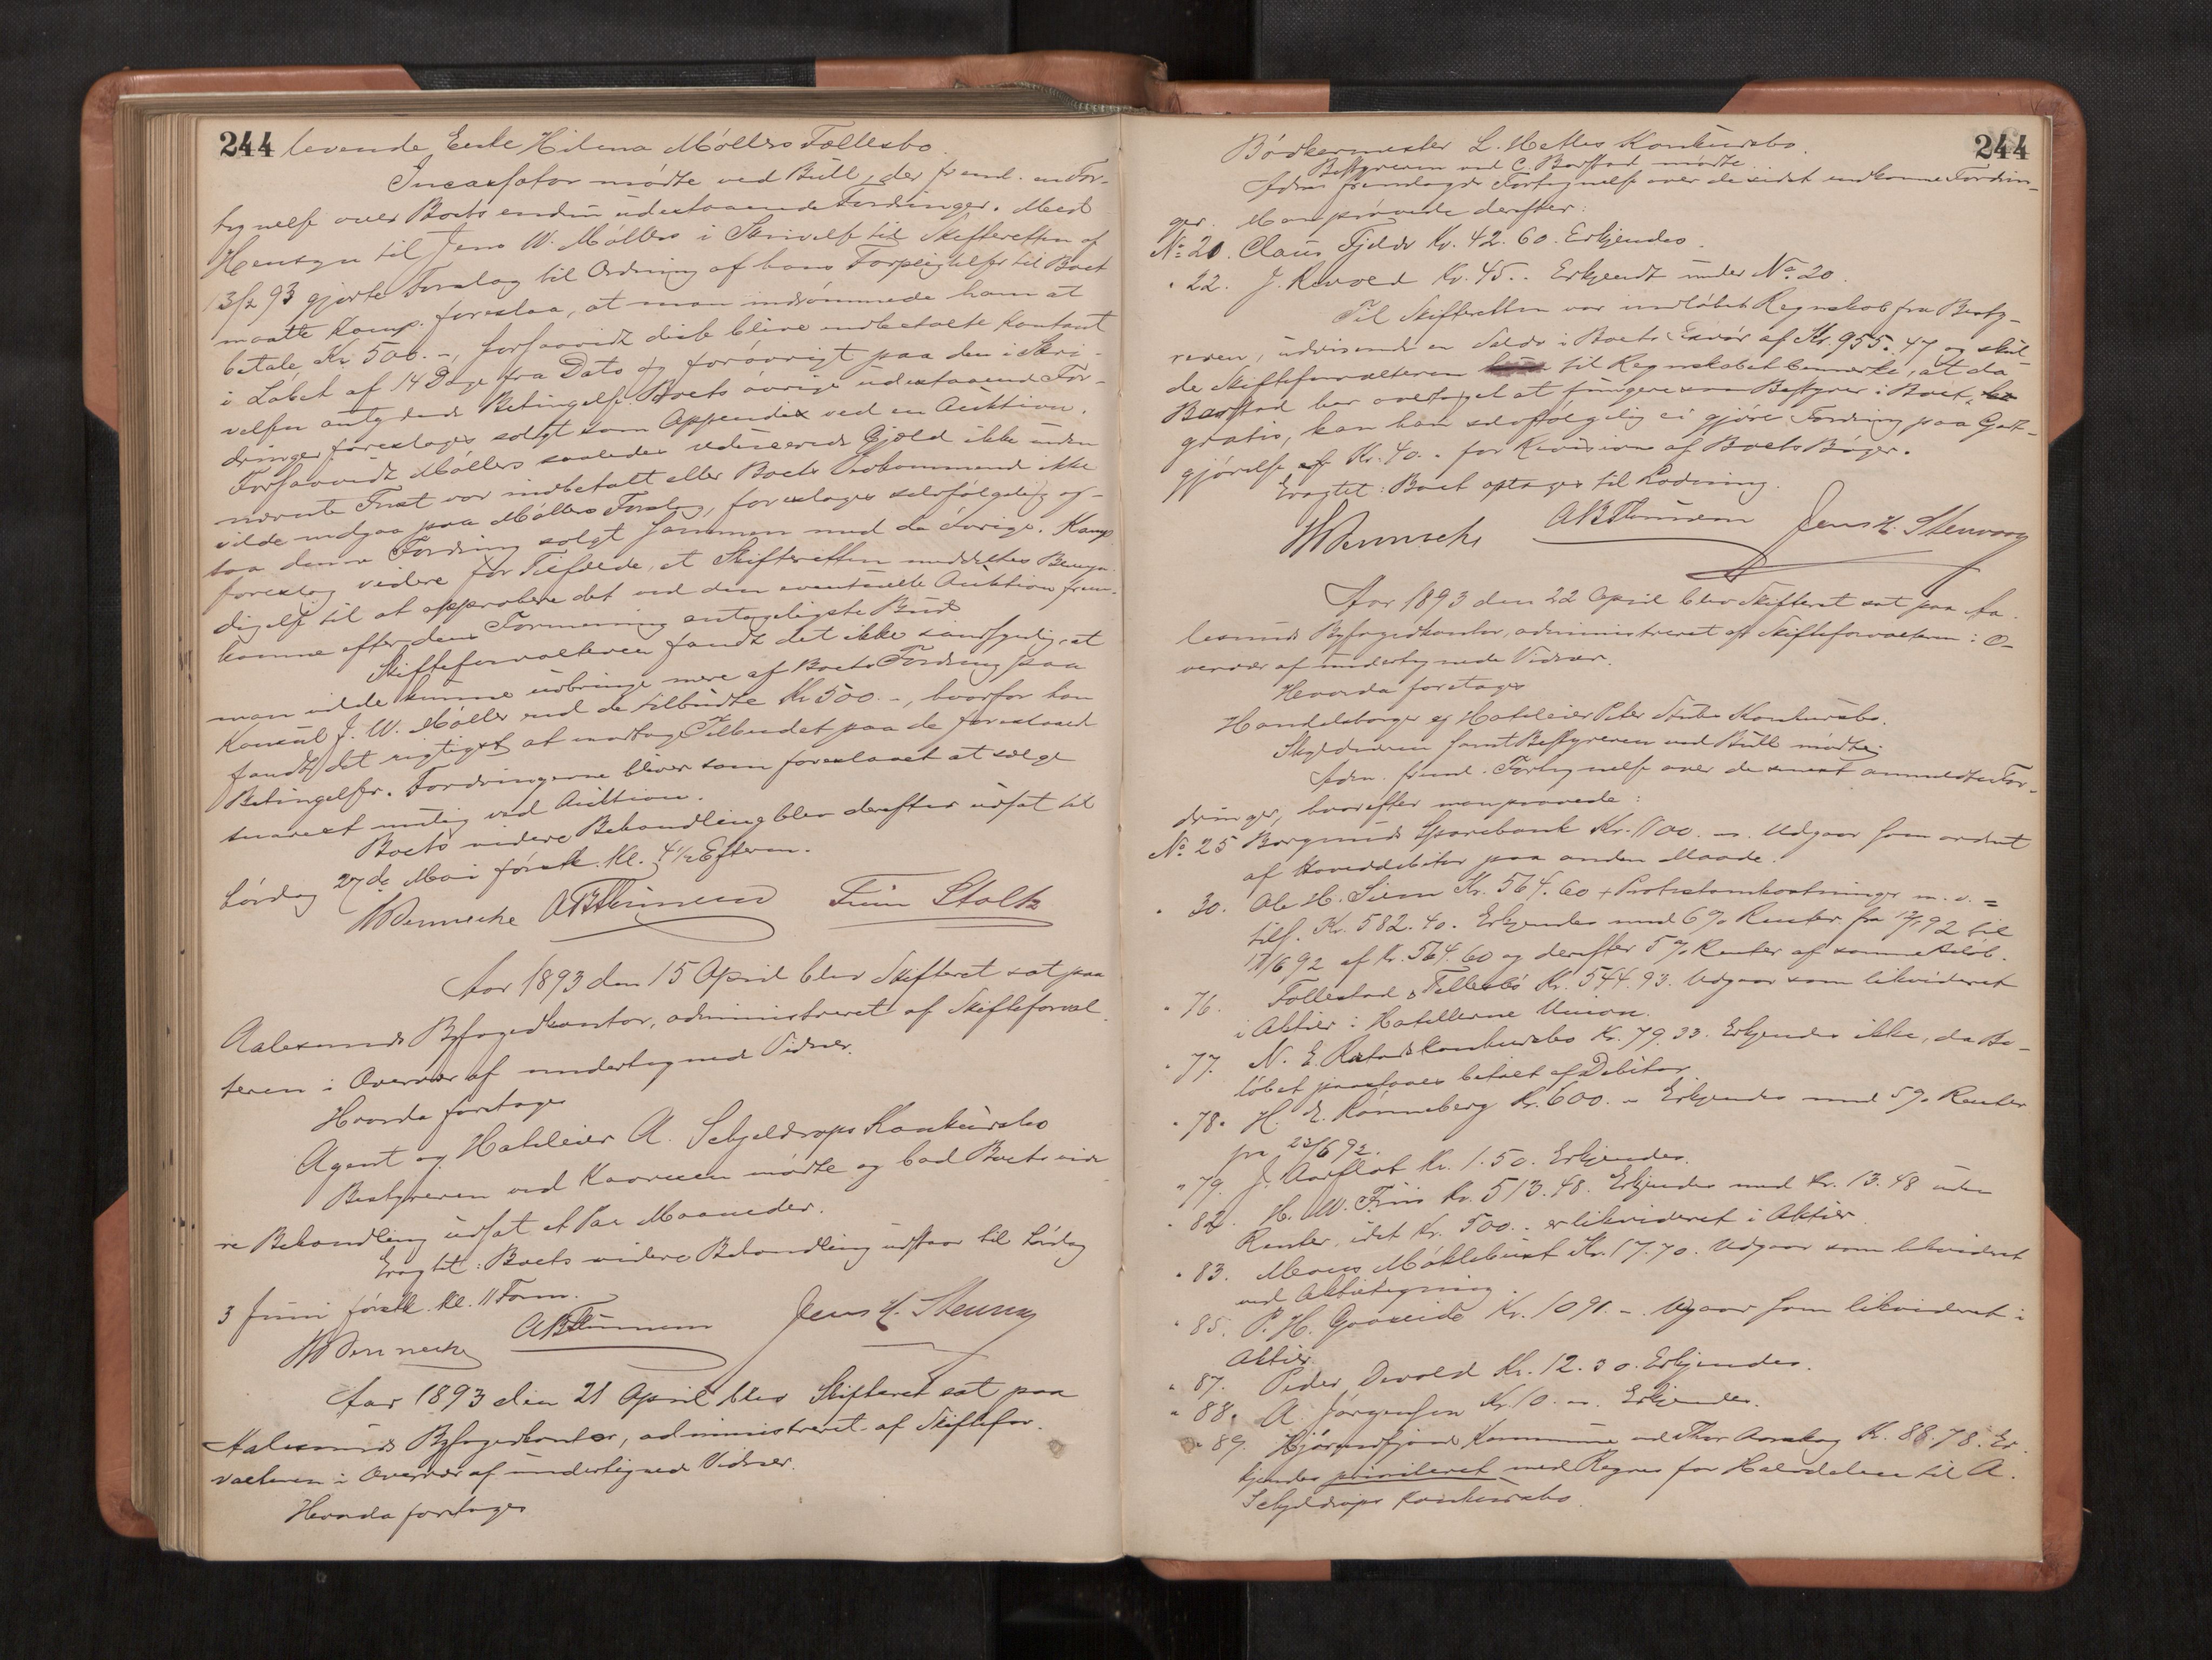 244 levende Enke Hilena Møllers Fællesbo.
Incassator mødte ved Bull, der freml. en For-
tegnelse over Boets endnu udestaaende Fordringer. Med
Hensyn til Jens W. Møllers i Skrivelse til Skifteretten af
13/2 93 gjorte Forslag til Ordning af hans Forpligtelser til Boet
maatte Komp. foreslaa, at man indrømmede ham at
betale Kr. 500.-, forsaavidt disse blive indbetalte kontant
i Løbet af 14 Dage fra Dato og forøvrigt paa den i Skri-
velsen antydede Betingelse. Boets øvrige udestaaende For-
dringer foreslages solgt som Appendix ved en Auktion.
Forsaavidt Møllers saaledes reducerede Gjæld ikke inden
nævnte Frist var indbetalt eller Boets Vedkommende ikke
vilde indgaa paa Møllers Forslag, foreslages selvfølgelig og-
saa denne Fordring solgt sammen med de øvrige. Komp.
foreslog videre for Tilfælde, at Skifteretten meddeltes Bemyn-
digelse til at approbere det ved den eventuelle Auktion frem-
komne efter dens Formening antageligste Bud
Skifteforvalteren fandt det ikke sandsynlig, at
man vilde kunne udbringe mere af Boets Fordring paa
Konsul J. W. Møller end de tilbudte Kr 500.-, hvorfor han
fandt det rigtigst at modtage Tilbudet paa de foreslaaede
Betingelser. Fordringerne bliver som foreslaaet at sælge
snarest mulig ved Auktion.
Boets videre Behandling blev derefter udsat til
Lørdag 27de Mai førstk. Kl. 4 1/2 Efterm.
Finn Stoltz
Aar 1893 den 15 April blev Skifteret sat paa
Aalesunds Byfogedkontor, administreret af Skifteforval-
teren i Overvær af undertegnede Vidner.
Hvorda foretoges
Agent og Hoteleier A. Schjeldrops Konkursbo
Bestyreren ved Kaaruen mødte og bad Boets vide-
re Behandling udsat et Par Maaneder.
Eragtet: Boets videre Behandling udstaar til Lørdag
3 Juni førstk. Kl. 11 Form.
Jens H. Stenvaag
Aar 1893 den 21 April blev Skifteret sat paa
Aalesunds Byfogedkontor, administreret af Skiftefor-
valteren i Overvær af undertegnede Vidner.
Hvorda foretoges
244
Bødkermester L. Hetles Konkursbo.
Bestyreren ved C. Barstad mødte.
Adm. fremlagde Fortegnelse over de sidst indkomne Fordrin-
ger. Man prøvede derefter:
No 20. Claus Fjelde Kr. 42.60. Erkjendes.
" 22. J. Revold Kr. 45.. Erkjendt under No 20.
Til Skifteretten var indløbet Regnskab fra Besty-
reren, udvisende en Saldo i Boets Favør af Kr. 955.47 og skul-
de Skifteforvalteren til Regnskabet bemærke, at da
Barstad har overtaget at fungere som Bestyrer i Boet
gratis, kan han selvfølgelig ei gjøre Fordring paa Godt-
gjørelse af Kr. 40.- for Revision af Boets Bøger.
Eragtet: Boet optages til Lodning.
Jens H. Stenvaag
Aar 1893 den 22 April blev Skifteret sat paa Aa-
lesunds Byfogedkontor, administreret af Skifteforvalteren i O-
vervær af undertegnede Vidner.
Hvorda foretoges
Handelsborger og Hoteleier Peter Stubs Konkursbo.
Skyldneren samt Bestyreren ved Bull mødte.
Adm. freml. Fortegnelse over de senest anmeldte For-
dringer, hvorefter man prøvede:
No 25 Borgunds Sparebank Kr. 1100.-. Udgaar som ordnet
af Hoveddebitor paa anden Maade.
" 30. Ole H. Siem Kr. 564.60 + Protestomkostninger m. v. =
tils. Kr. 582.40. Erkjendes med 6% Renter fra 92 til
17/6 92 af Kr. 564.60 og derefter 5% Renter af samme Beløb.
" 76. Follestad & Tellesbø Kr. 544.93. Udgaar som likvideret
i Aktier i Hotellerne Union.
" 77. N. E. Konkursbo Kr. 79.33. Erkjendes ikke, da Be-
løbet paastaaes betalt af Debitor.
" 78. H. E. Rønneberg Kr. 600.- Erkjendes med 5% Renter
fra 23/6 92.
" 79. J. Aarflot Kr. 1.50. Erkjendes.
" 82. H. W. Friis Kr. 513.48. Erkjendes med Kr. 13.48 uden
Renter, idet Kr. 500.- er likvideret i Aktier.
" 83. Mons Møklebust Kr. 17.70. Udgaar som likvideret
ved Aktietegning.
" 85. P. H. Gaaseide Kr. 1091.-. Udgaar som likvideret i
Aktier.
" 87. Peder Devold Kr. 12.30. Erkjendes.
" 88. A. Jørgensen Kr. 10.-. Erkjendes.
" 89. Hjørundfjord Kommune ved Thor Aarskog Kr. 88.78. Er-
kjendes privileret med Regres for Halvdelen til A.
Schjeldrops Konkursbo.